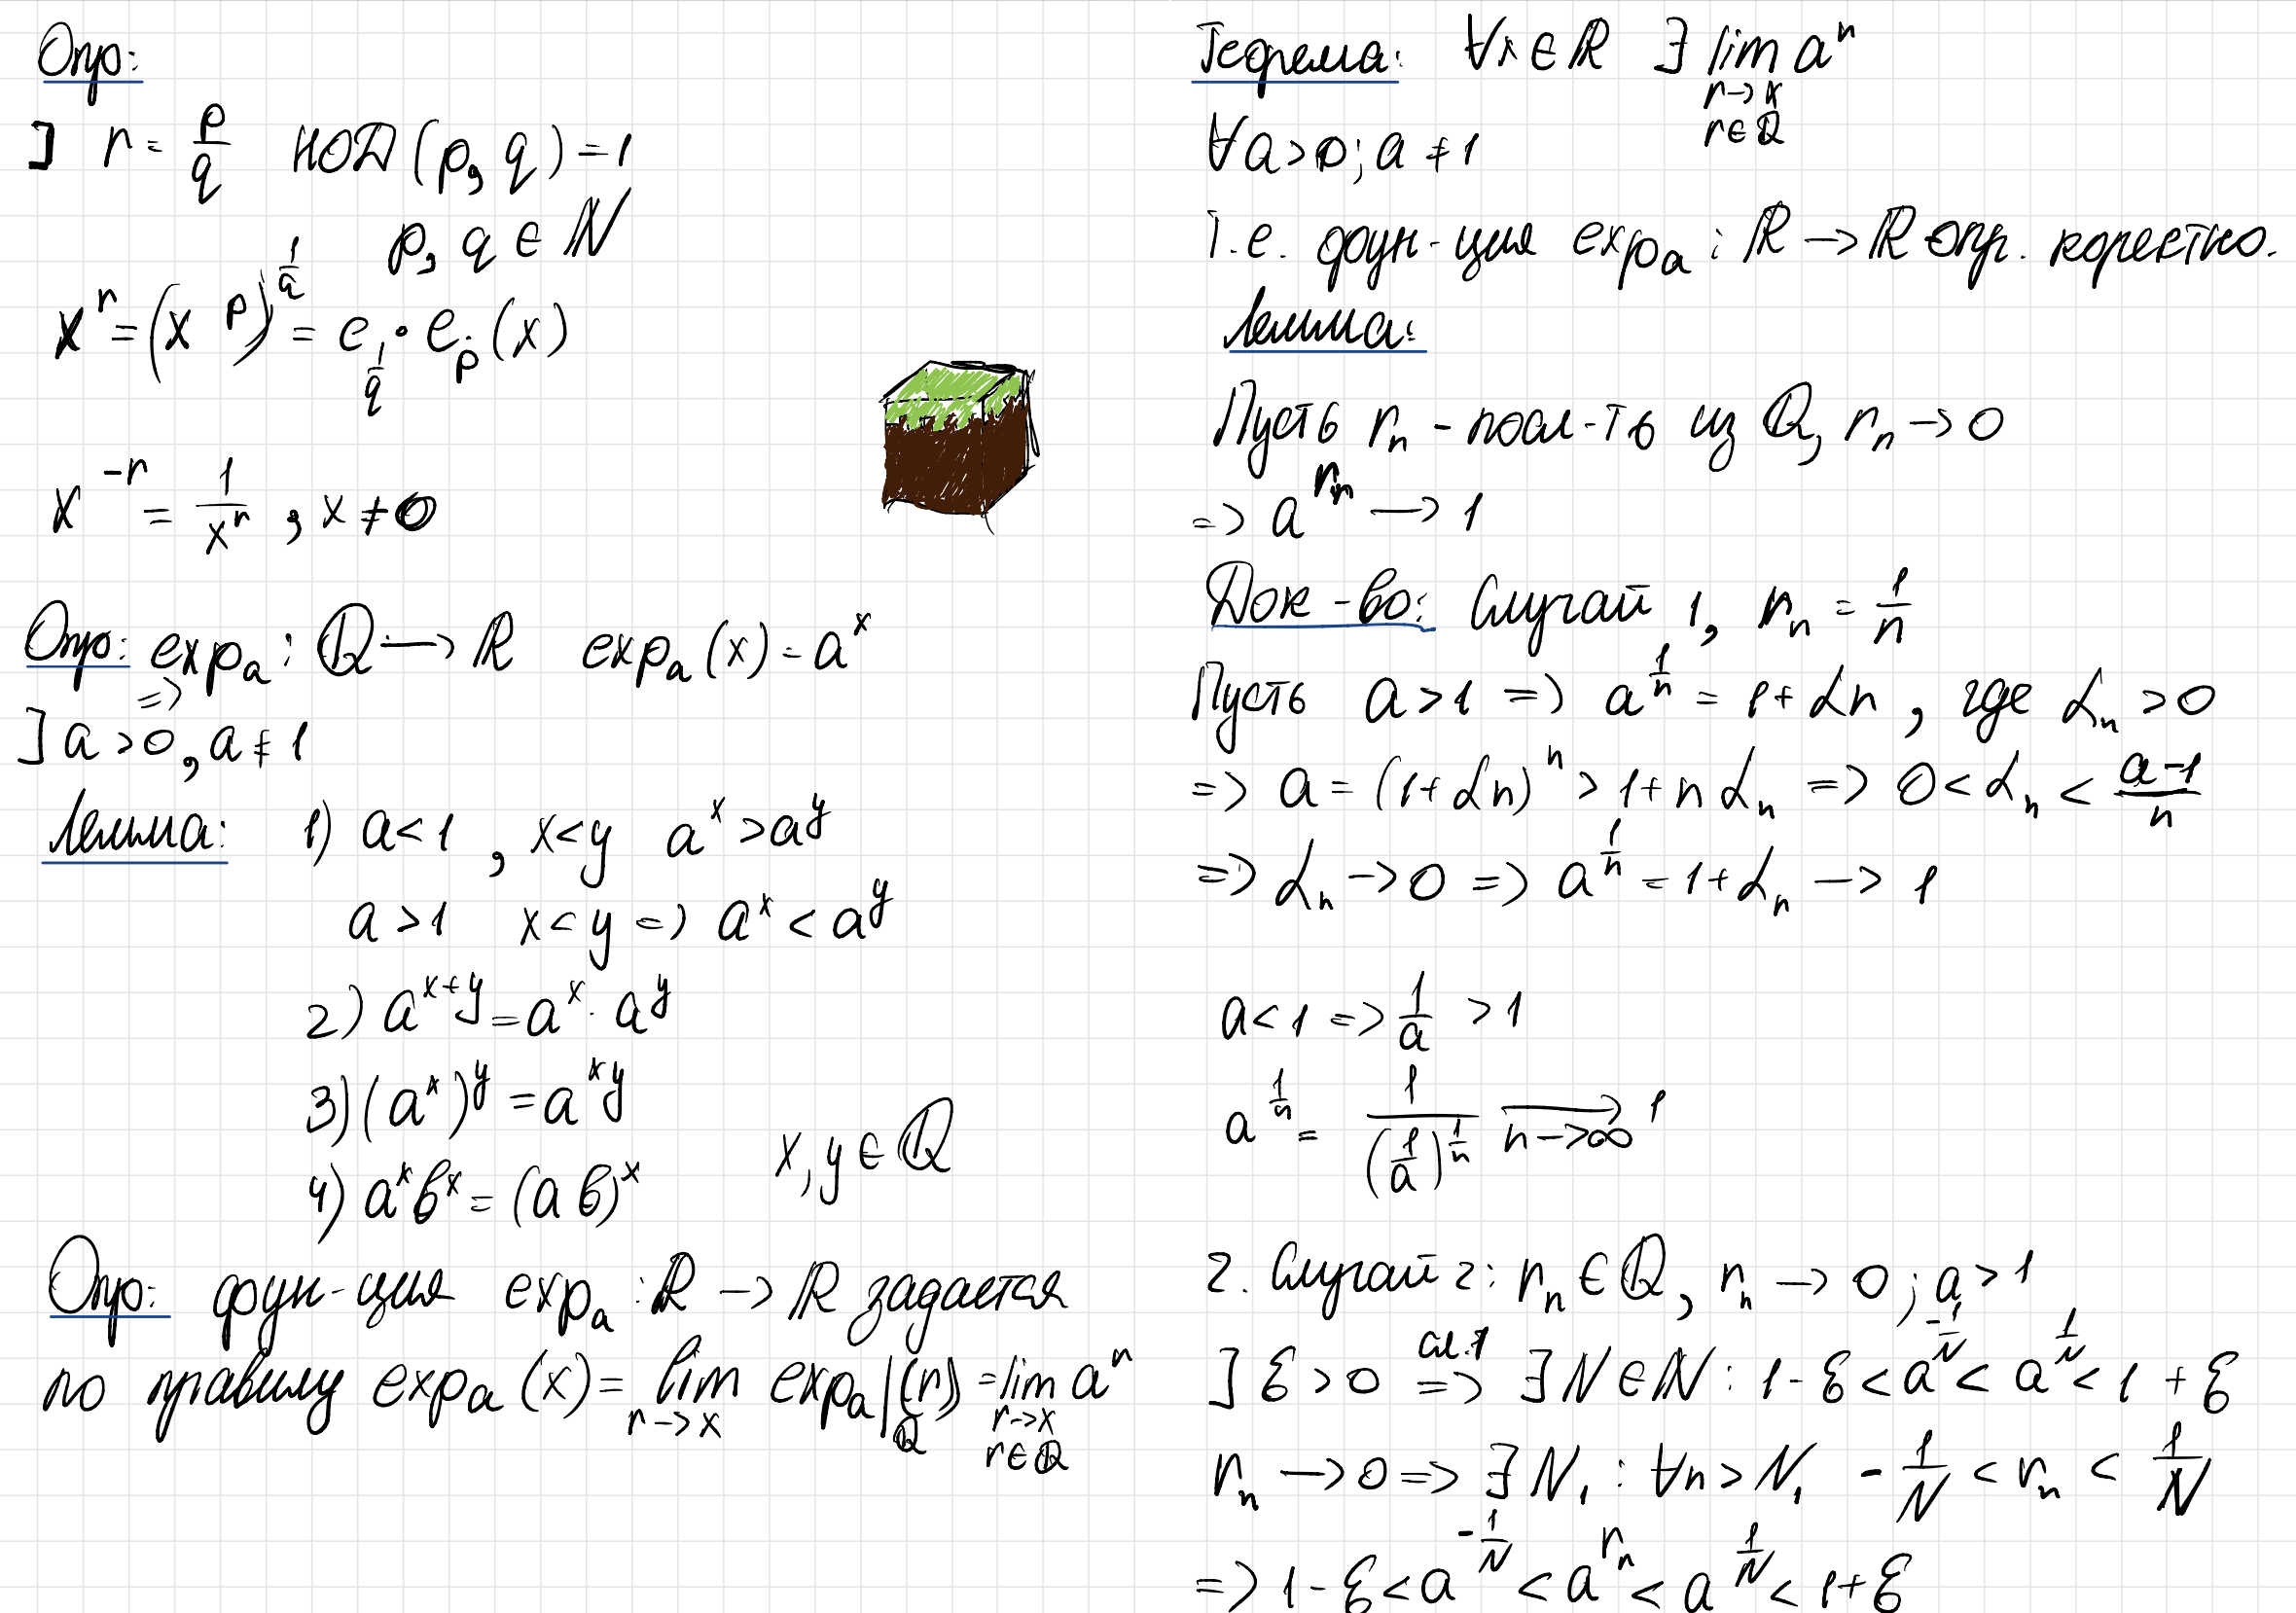 Опр:
] r = p/q НОД(p, q) = 1
p, q ∈ ℕ
x^r = (x^p)^(1/q) = e_(1/q) ∘ e_p(x)
x^(-r) = 1/x^r , x ≠ 0
Опр: exp_a : ℚ → ℝ exp_a(x) = a^x
=>
] a > 0, a ≠ 1
Лемма: 1) a < 1 , x < y a^x > a^y
a > 1 x < y => a^x < a^y
2) a^(x+y) = a^x · a^y
3) (a^x)^y = a^(xy)
x, y ∈ ℚ
4) a^x b^x = (ab)^x
Опр: фун-ция exp_a : ℝ → ℝ задается
по правилу exp_a(x) = lim_(r→x) exp_a|_ℚ(r) = lim_(r→x, r∈ℚ) a^r
Теорема: ∀x ∈ ℝ ∃ lim_(r→x, r∈ℚ) a^r
∀a > 0; a ≠ 1
Т.е. фун-ция exp_a : ℝ → ℝ опр. коректно.
Лемма:
Пусть r_n - посл-ть из ℚ, r_n → 0
=> a^(r_n) → 1
Док-во: Случай 1, r_n = 1/n
Пусть a > 1 => a^(1/n) = 1 + α_n , где α_n > 0
=> a = (1 + α_n)^n > 1 + n α_n => 0 < α_n < (a-1)/n
=> α_n → 0 => a^(1/n) = 1 + α_n → 1
a < 1 => 1/a > 1
a^(1/n) = 1/((1/a)^(1/n)) →_(n→∞) 1
2. Случай 2: r_n ∈ ℚ, r_n → 0; a > 1
] ε > 0 =>^(сл.1) ∃N ∈ ℕ : 1 - ε < a^(-1/N) < a^(1/N) < 1 + ε
r_n → 0 => ∃N_1 : ∀n > N_1 -1/N < r_n < 1/N
=> 1 - ε < a^(-1/N) < a^(r_n) < a^(1/N) < 1 + ε